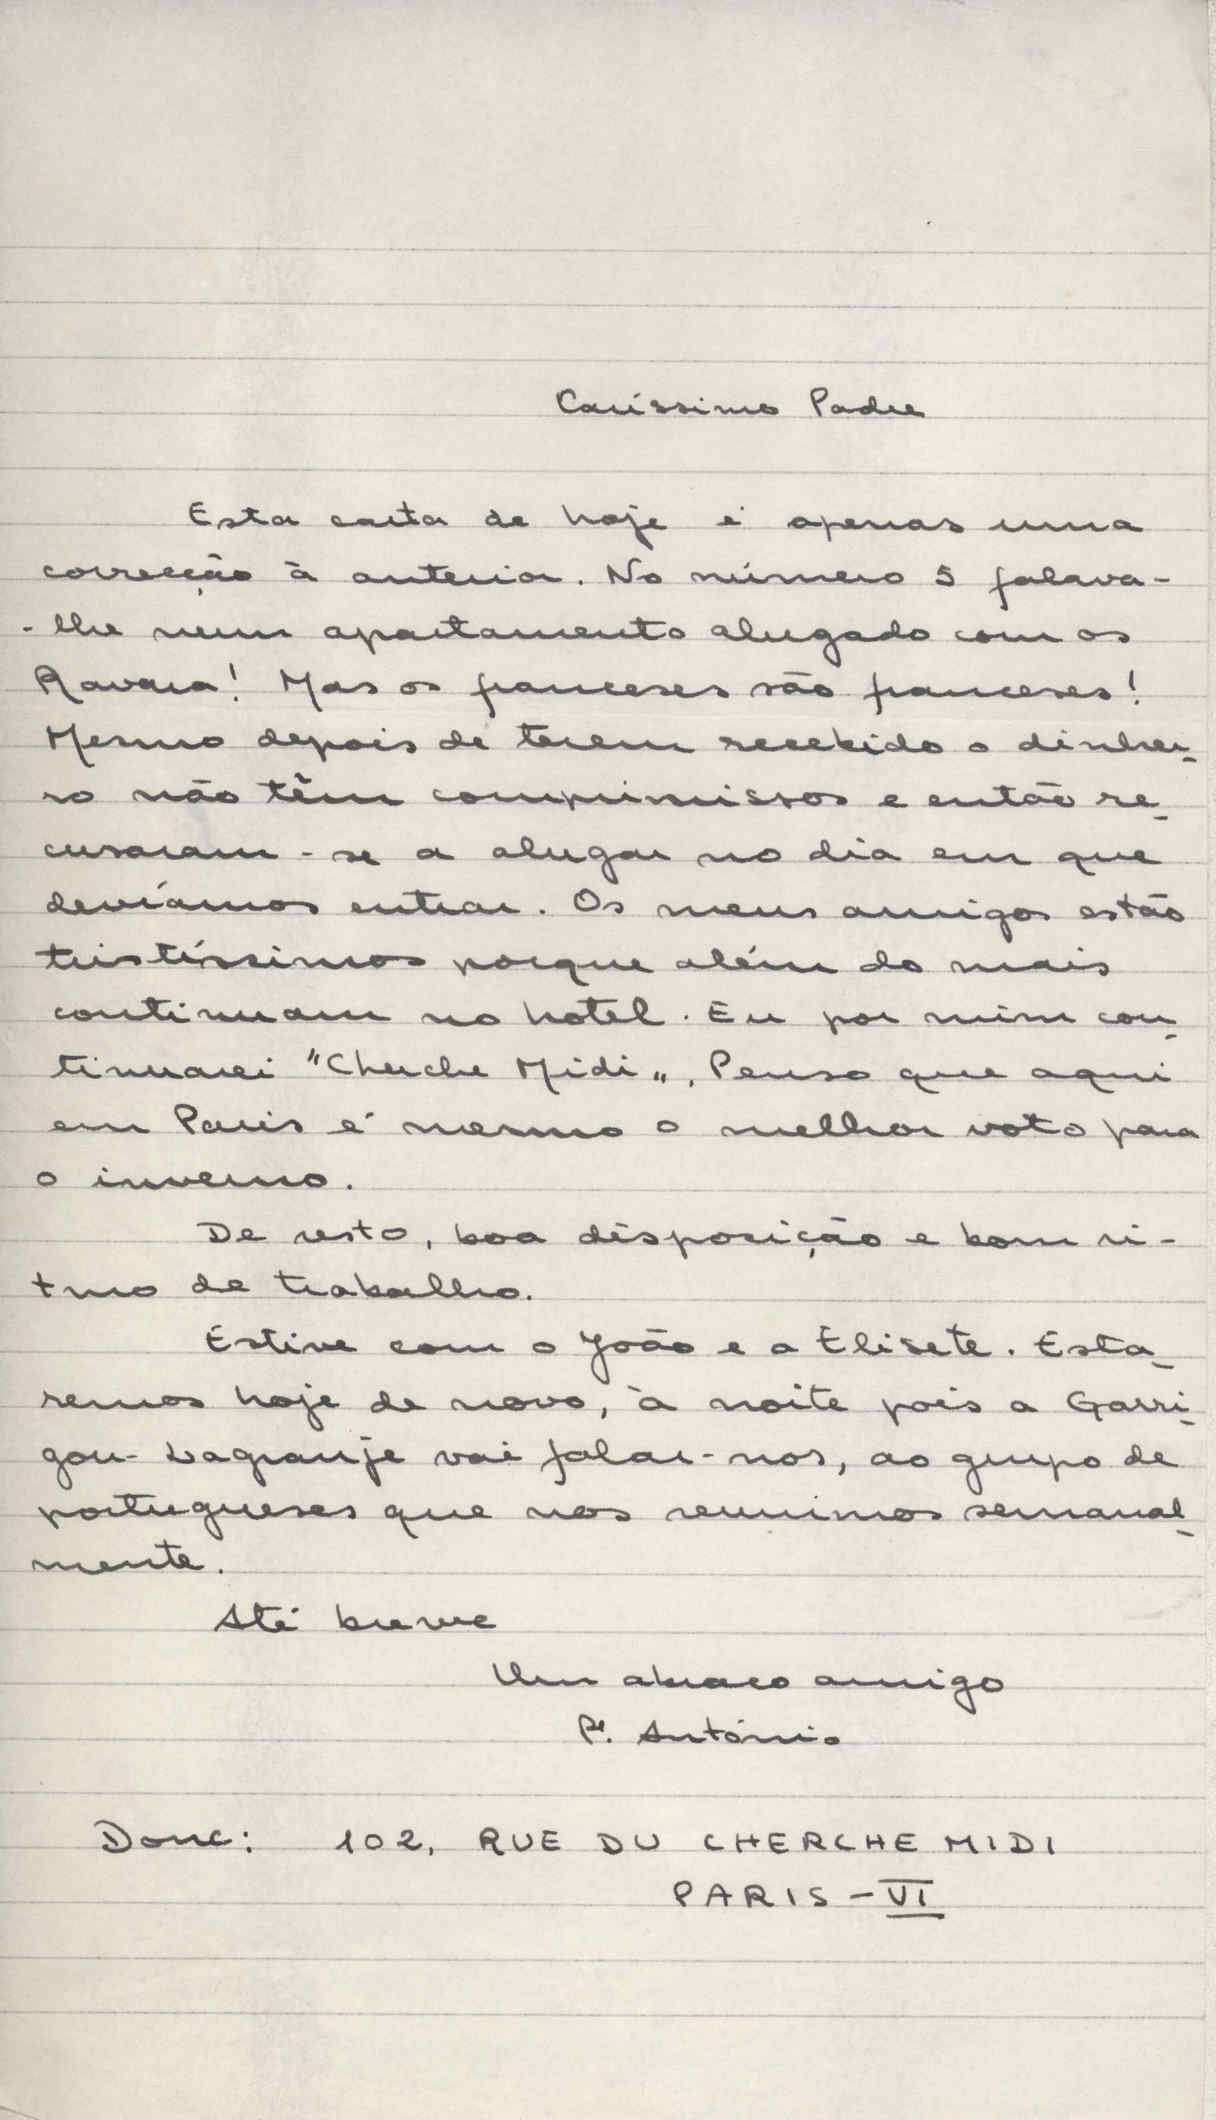 Caríssimo Padre
Esta carta de hoje é apenas uma
correcção à anterior. No número 5 falava-
-lhe num apartamento alugado com os
Ravara! Mas os franceses são franceses!
Mesmo depois de terem recebido o dinhei-
ro não têm comprimissos e então re-
cusaram-se a alugar no dia em que
devíamos entrar. Os meus amigos estão
tristíssimos porque além do mais
continuam no hotel. Eu por mim con-
tinuarei "Cherche Midi„. Penso que aqui
em Paris é mesmo o melhor voto para
o inverno.
De resto, boa disposição e bom ri-
tmo de trabalho.
Estive com o João e a Elisete. Esta-
remos hoje de novo, à noite pois a Garri-
gou-Lagranje vai falar-nos, ao grupo de
portugueses que nos reunimos semanal-
mente.
Até breve
Um abraço amigo
Pe. António
Donc: 102, RUE DU CHERCHE MIDI
PARIS - VI